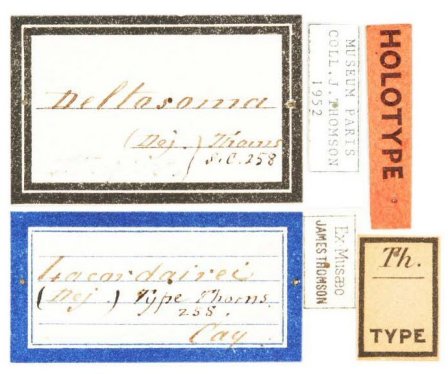 Deltosoma
(Dej.) Thoms
S.C. 258
MUSEUM PARIS
COLL. J. THOMSON
1952
HOLOTYPE
Lacordairei
(Dej.) Type Thoms.
258.
Cay
Ex Musaeo
JAMES THOMSON
Th.
TYPE